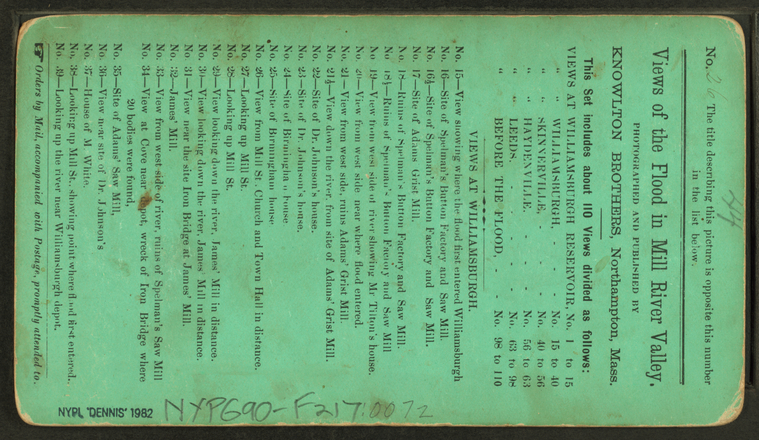 44
No. The title describing this picture is opposite this number
in the list below.
Views of the Flood in Mill River Valley.
PHOTOGRAPHED AND PUBLISHED BY
KNOWLTON BROTHERS, Northampton, Mass.
This Set includes about 110 Views divided as follows:
VIEWS AT WILLIAMSBURGH RESERVOIR, No. 1 to 15
" " WILLIAMSBURGH, - - - No. 15 to 40
" " SKINNERVILLE, - - - No. 40 to 56
" " HAYDENVILLE, - - - No. 56 to 63
" " LEEDS, - - - - No. 63 to 98
" BEFORE THE FLOOD, - - - No. 98 to 110
VIEWS AT WILLIAMSBURGH.
No. 15—View showing where the flood first entered Williamsburgh
No. 16—Site of Spelman's Button Factory and Saw Mill.
No. 16½—Site of Spelman's Button Factory and Saw Mill.
No. 17—Site of Adams Grist Mill.
No. 18—Ruins of Spelman's Button Factory and Saw Mill.
No. 18½—Ruins of Spelman's Button Factory and Saw Mill
No. 19—View from west side of river showing M. Tilton's house.
No. 20—View from west side near where flood entered.
No. 21—View from west side, ruins Adams' Grist Mill.
No. 21½—View down the river, from site of Adams' Grist Mill.
No. 22—Site of Dr. Johnson's house.
No. 23—Site of Dr. Johnson's house.
No. 24—Site of Birmingham house
No. 25—Site of Birmingham house
No. 26—View from Mill St., Church and Town Hall in distance.
No. 27—Looking up Mill St.
No. 28—Looking up Mill St.
No. 29—View looking down the river, James' Mill in distance.
No. 30—View looking down the river, James' Mill in distance.
No. 31—View near the site Iron Bridge at James' Mill.
No. 32—James' Mill.
No. 33—View from west side of river, ruins of Spelman's Saw Mill
No. 34—View at Cove near depot, wreck of Iron Bridge where
20 bodies were found.
No. 35—Site of Adams' Saw Mill,
No. 36—View near site of Dr. Johnson's
No. 37—House of M. White.
No. 38—Looking up Mill St., showing point where flood first entered.
No. 39—Looking up the river near Williamsburgh depot.
☞ Orders by Mail, accompanied with Postage, promptly attended to.
NYPL "DENNIS" 1982
NYPG90-F217:0072